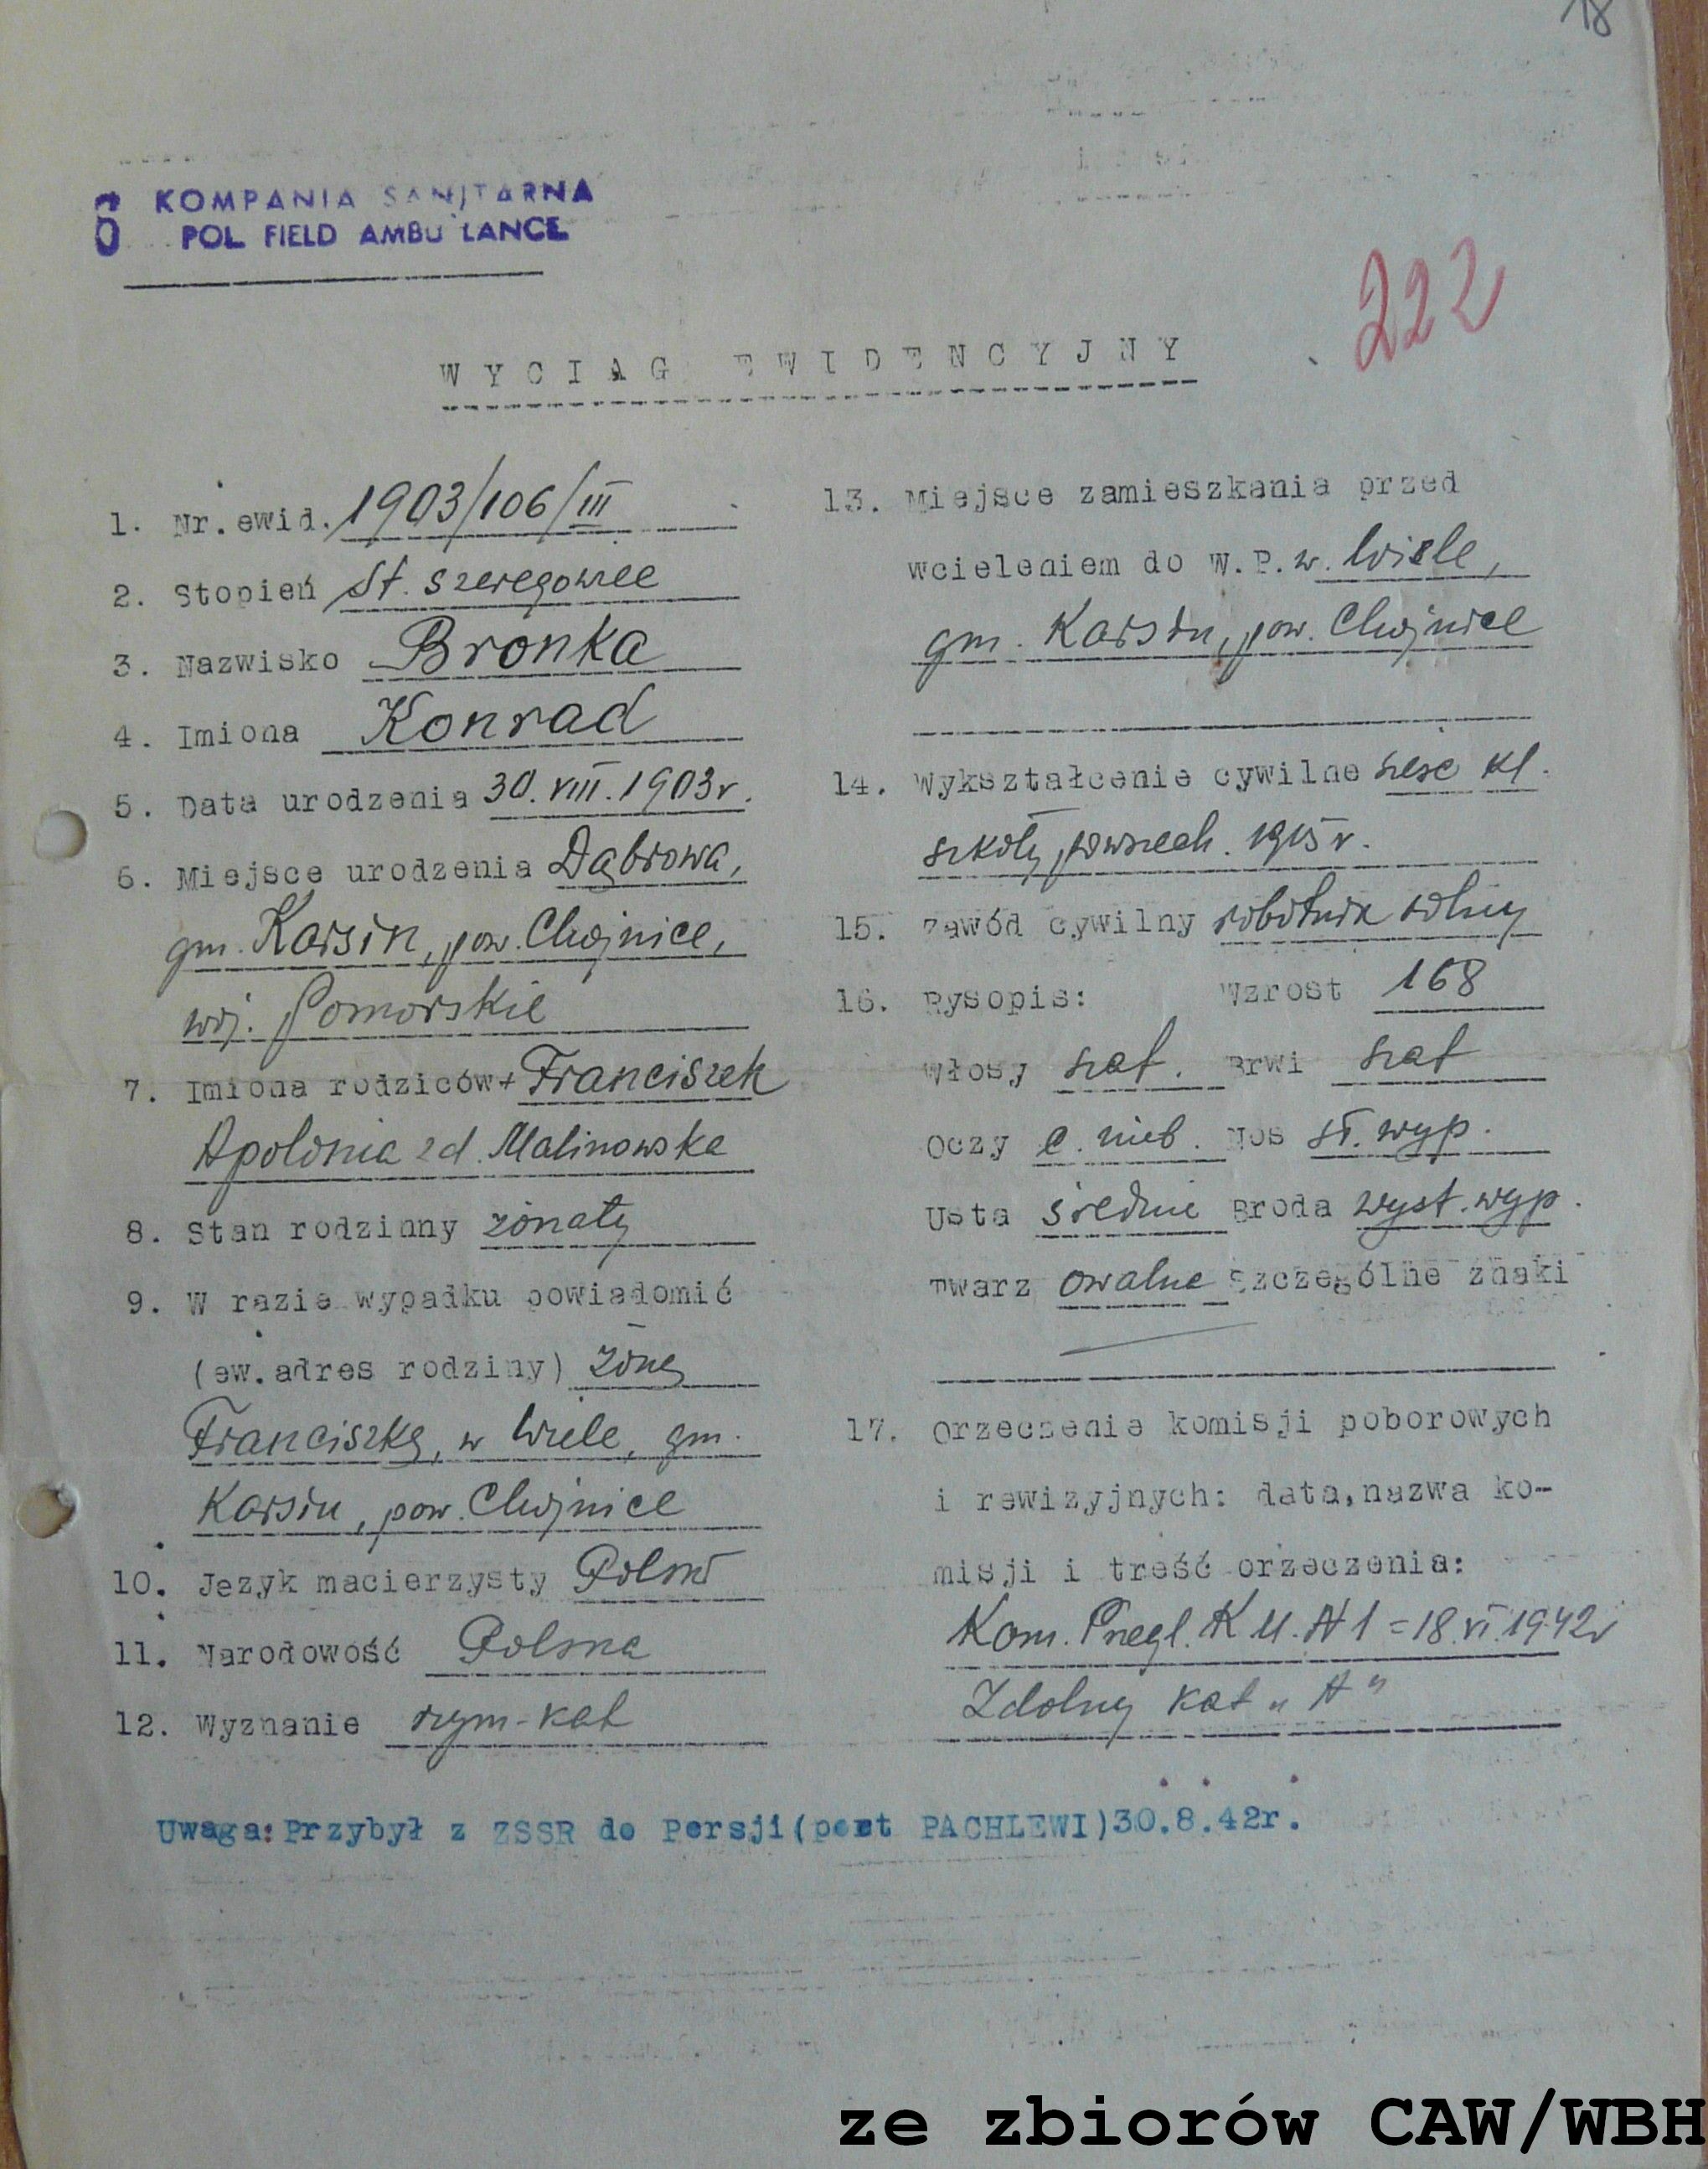 18
KOMPANIA SANITARNA
POL FIELD AMBULANCE
222
WYCIĄG EWIDENCYJNY
1. Nr.ewid. 1903/106/III
2. Stopień St. szeregowiec
3. Nazwisko Bronka
4. Imiona Konrad
5. Data urodzenia 30.VIII.1903r.
6. Miejsce urodzenia Dąbrowa,
gm. Karsin, pow. Chojnice,
woj. Pomorskie
7. Imiona rodziców Franciszek
Apolonia zd. Malinowska
8. Stan rodzinny żonaty
9. W razie wypadku powiadomić
(ew.adres rodziny) żonę
Franciszkę, w Wiele, gm.
Karsin, pow. Chojnice
10. Język macierzysty Polski
11. Narodowość Polska
12. Wyznanie rzym-kat
13. Miejsce zamieszkania przed
wcieleniem do W.P. w. Wiele,
gm. Karsin, pow. Chojnice
14. Wykształcenie cywilne sześć kl.
szkoły powszech. 1915r.
15. Zawód cywilny robotnik rolny
16. Rysopis: Wzrost 168
Włosy szat. Brwi szat
Oczy c. nieb. Nos śr. wyp.
Usta średnie Broda wyst. wyp.
Twarz owalna Szczególne znaki
17. Orzeczenie komisji poborowych
i rewizyjnych: data,nazwa ko-
misji i treść orzeczenia:
Kom. Przegl. K.U. N1 = 18.VI.1942r
Zdolny kat „A"
Uwaga: Przybył z ZSSR do Persji(port PACHLEWI)30.8.42r.
ze zbiorów CAW/WBH